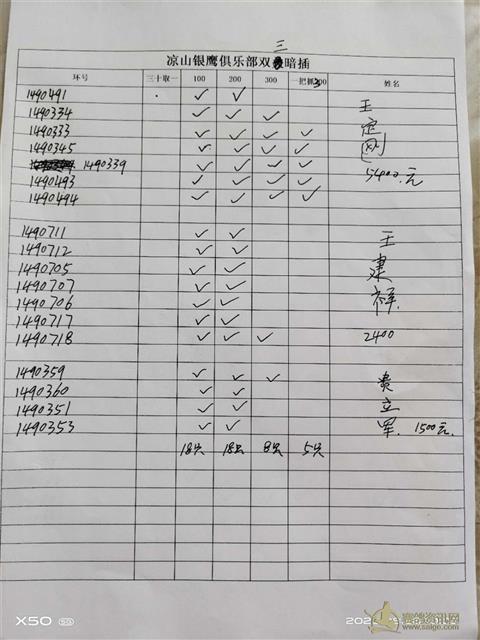 三
凉山银鹰俱乐部双暗插
环号 三十取一 100 200 300 一把抓300 姓名
1490491 ✓ ✓ 王
1490334 ✓ ✓ ✓ 定
1490333 ✓ ✓ ✓ ✓ 刚
1490345 ✓ ✓ ✓ ✓
1490339 ✓ ✓ ✓ ✓ 5400.元
1490493 ✓ ✓ ✓ ✓
1490494 ✓ ✓ ✓ ✓
1490711 ✓ ✓ 王
1490712 ✓ ✓
1490705 ✓ ✓ 建
1490707 ✓ ✓
1490706 ✓ ✓ 祥.
1490717 ✓ ✓
1490718 ✓ ✓ ✓ 2400
1490359 ✓ ✓ ✓ 费
1490360 ✓ ✓ 立
1490351 ✓ ✓
1490353 ✓ ✓ 军. 1500元.
18只 18只 8只 5只
X50 5G
赛鸽资讯网
www.saige.com